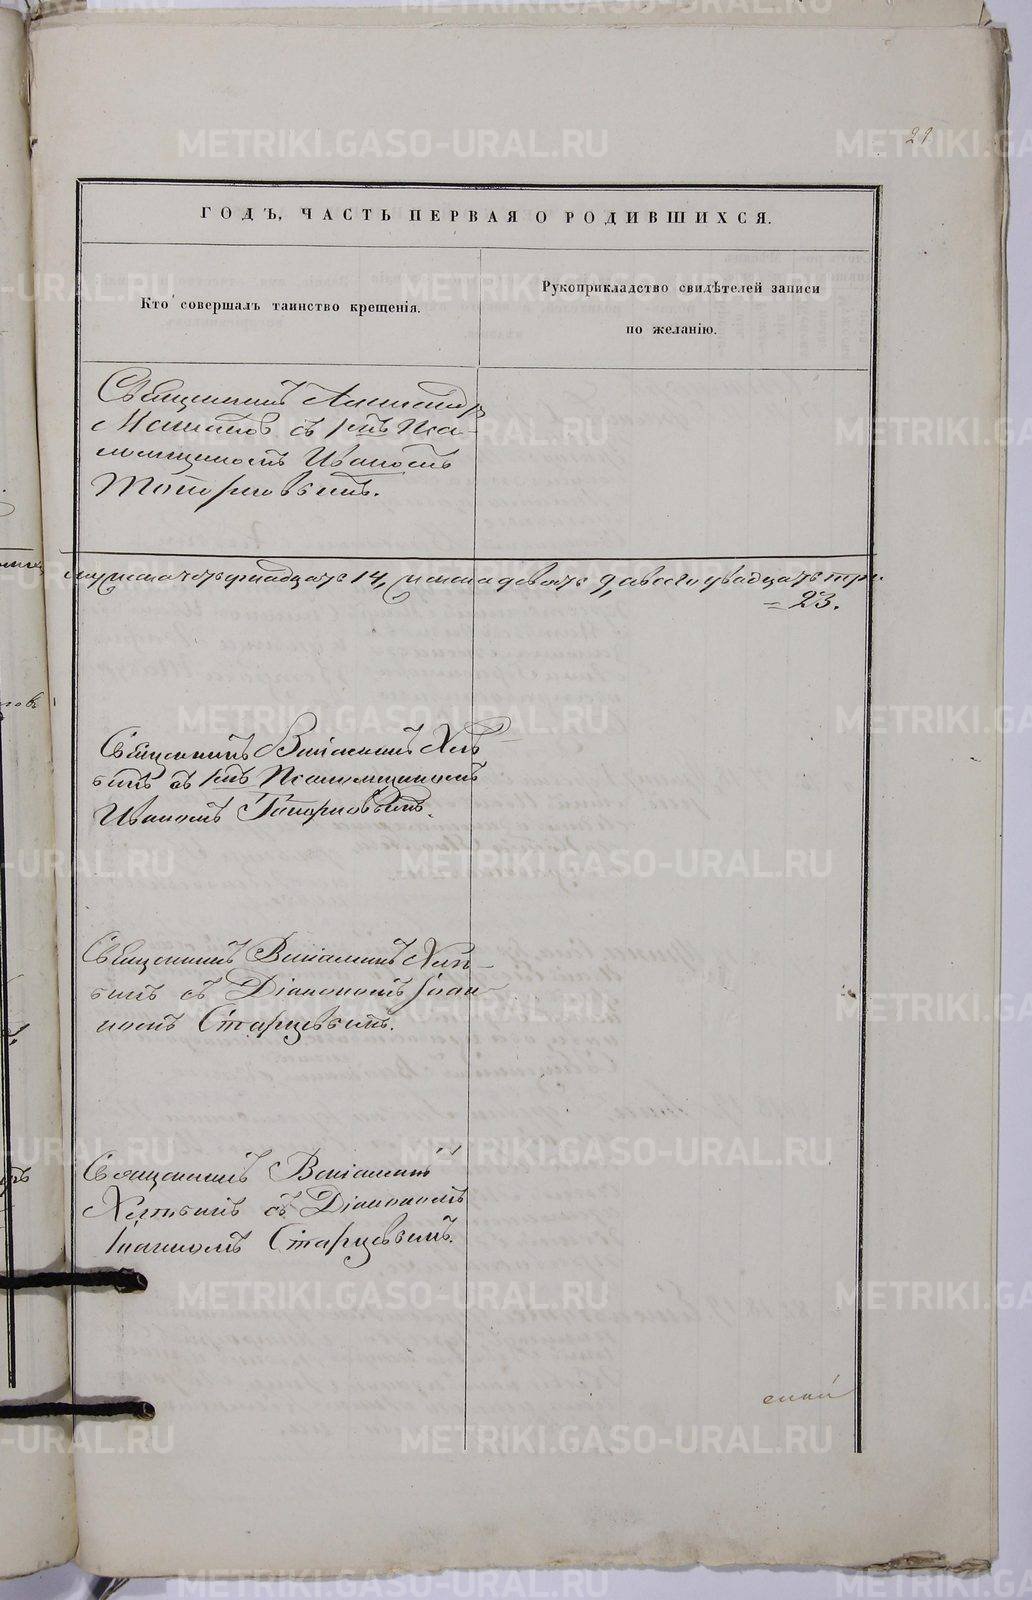 21
ГОДЪ, ЧАСТЬ ПЕРВАЯ О РОДИВШИХСЯ.
Кто совершалъ таинство крещенія.
Рукоприкладство свидѣтелей записи
по желанію.
Священникъ Александръ
съ Пса-
ломщикомъ Иваномъ
Топорковымъ.
мужеска четырнадцать 14, женска девять 9, а всего двадцать три
= 23.
Священникъ Веніаминъ
съ Псаломщикомъ
Иваномъ Топорковымъ.
Священникъ Веніаминъ
съ Діакономъ Іоан-
номъ Старцевымъ.
Священникъ Веніаминъ
съ Діакономъ
Іоанномъ Старцевымъ.
METRIKI.GASO-URAL.RU